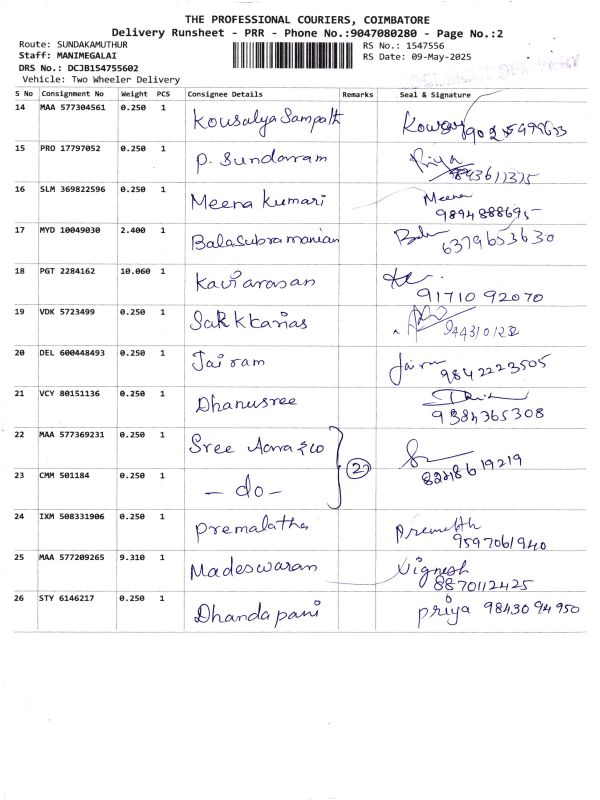 THE PROFESSIONAL COURIERS, COIMBATORE
Delivery Runsheet - PRR - Phone No.:9047080280 - Page No.:2
Route: SUNDAKAMUTHUR
RS No.: 1547556
Staff: MANIMEGALAI
RS Date: 09-May-2025
DRS No.: DCJB154755602
Vehicle: Two Wheeler Delivery
S No Consignment No Weight PCS Consignee Details Remarks Seal & Signature
14 MAA 577304561 0.250 1 Kousalya Sampath
15 PRO 17797052 0.250 1 P. Sundarram Priya
9843611375
16 SLM 369822596 0.250 1 Meena kumari Meena
9894888695
17 MYD 10049030 2.400 1 Balasubramanian 6379653630
18 PGT 2284162 10.060 1 Kaviarasan
91710 92070
19 VDK 5723499 0.250 1 9443101232
20 DEL 600448493 0.250 1 Jairam Jairam
9842223505
21 VCY 80151136 0.250 1 Dhanusree
9384365308
22 MAA 577369231 0.250 1 Sree
8248619219
23 CMM 501184 0.250 1 - do - 2
24 IXM 508331906 0.250 1 Premalatha Premalatha
9597061940
25 MAA 577209265 9.310 1 Madeswaran Vignesh
8870112425
26 STY 6146217 0.250 1 Dhandapani priya 98430 94950